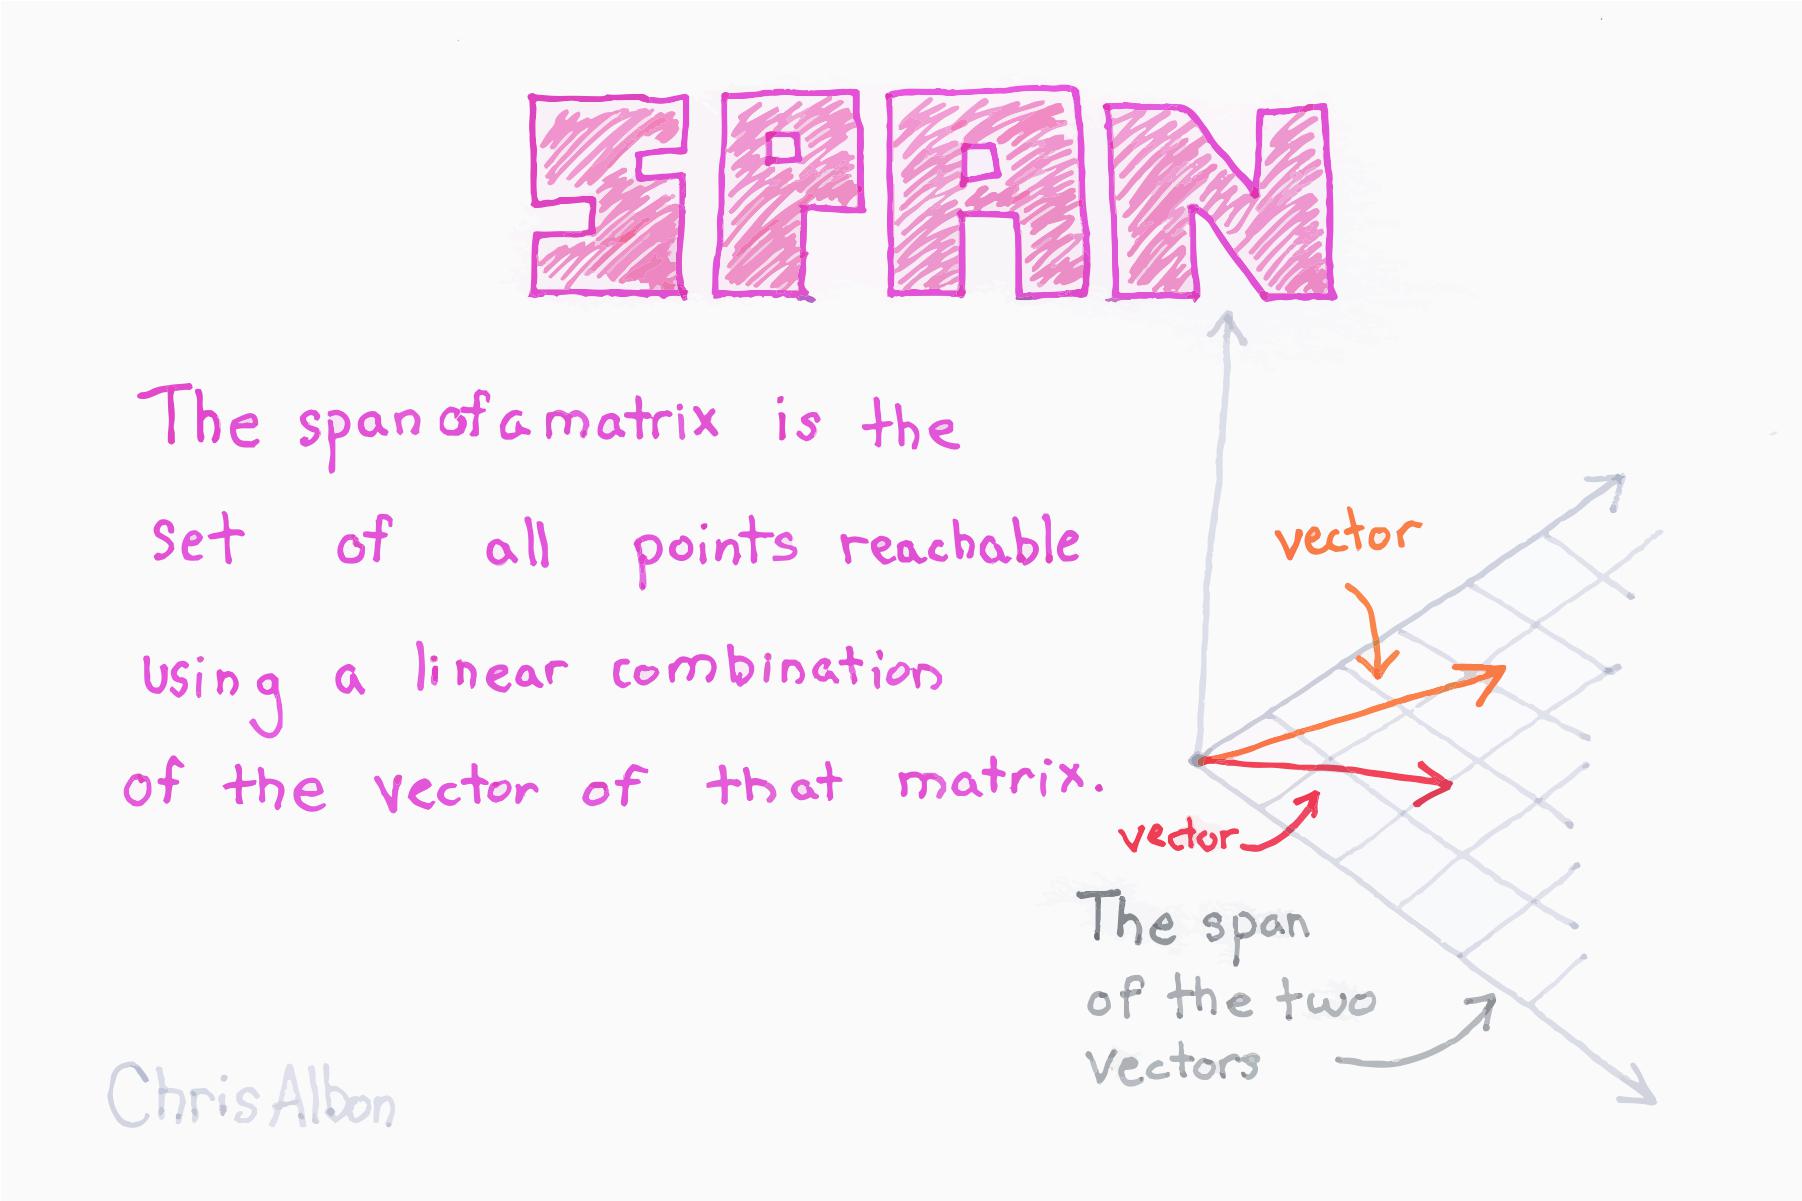 SPAN
The span of a matrix is the
set of all points reachable
using a linear combination
of the vector of that matrix.
vector
vector
The span
of the two
vectors
Chris Albon